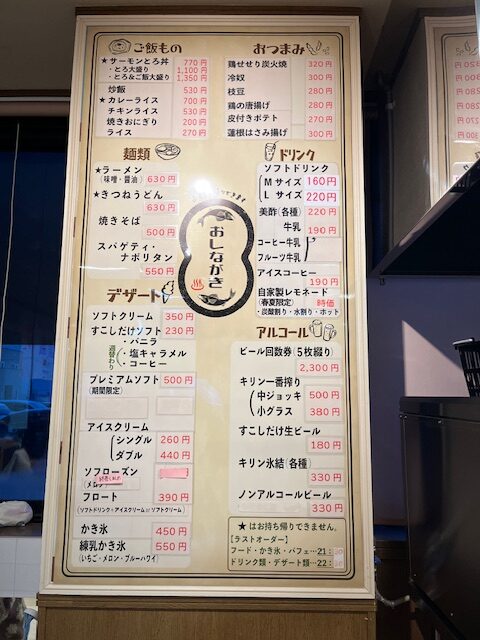 ご飯もの
★サーモンとろ丼 770円
・とろ大盛り 1,100円
・とろ&ご飯大盛り 1,350円
炒飯 530円
★カレーライス 700円
チキンライス 530円
焼きおにぎり 200円
ライス 270円
麺類
★ラーメン
(味噌・醤油) 630円
★きつねうどん
630円
焼きそば
500円
スパゲティ・
ナポリタン
550円
デザート
ソフトクリーム 350円
すこしだけソフト 230円
週替わり
・バニラ
・塩キャラメル
・コーヒー
プレミアムソフト 500円
(期間限定)
アイスクリーム
シングル 260円
ダブル 440円
ソフローズン
(メロン)
フロート 390円
(ソフトドリンク+アイスクリーム or ソフトクリーム)
かき氷 450円
練乳かき氷 550円
(いちご・メロン・ブルーハワイ)
おしながき
おつまみ
鶏せせり炭火焼 320円
冷奴 300円
枝豆 280円
鶏の唐揚げ 280円
皮付きポテト 270円
蓮根はさみ揚げ 300円
ドリンク
ソフトドリンク
Mサイズ 160円
Lサイズ 220円
美酢(各種) 220円
牛乳 190円
コーヒー牛乳 〃
フルーツ牛乳
アイスコーヒー
190円
自家製レモネード
(春夏限定) 時価
・炭酸割り・水割り・ホット
アルコール
ビール回数券(5枚綴り)
2,300円
キリン一番搾り
中ジョッキ 500円
小グラス 380円
すこしだけ生ビール
180円
キリン氷結(各種)
330円
ノンアルコールビール
330円
★はお持ち帰りできません。
【ラストオーダー】
フード・かき氷・パフェ…21:
ドリンク類・デザート類…22: